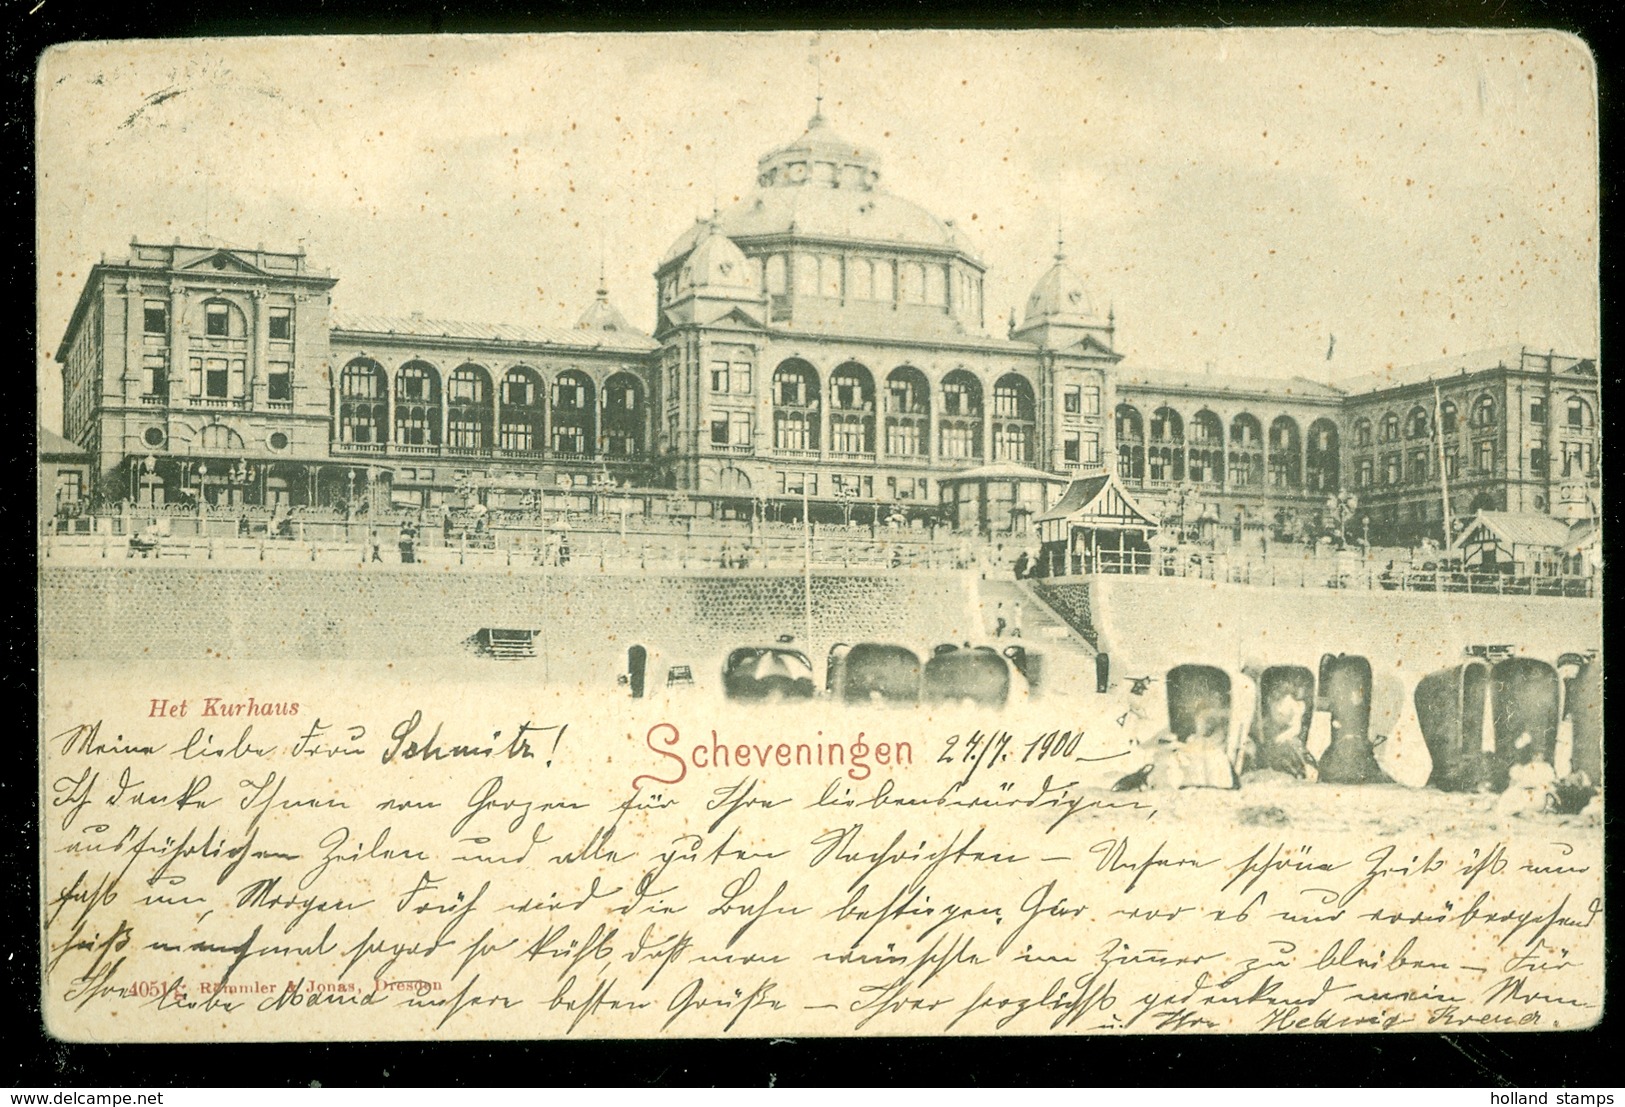 Het Kurhaus
Meine liebe Frau Schmitz!
Scheveningen 24./7. 1900
Ich danke Ihnen von Herzen für Ihre liebenswürdigen,
ausführlichen Zeilen und alle guten Nachrichten – Unsere schöne Zeit ist nun
fast um, Morgen Früh wird die Bahn bestiegen. Hier war es nur vorübergehend
heiß manchmal sogar so kühl, daß man wünschte im Zimmer zu bleiben – Für
Ihre liebe Mama unsere besten Grüße – Ihrer herzlichst gedenkend mein Mann
4051g Römmler & Jonas, Dresden
u. Ihre Hedwig
www.delcampe.net
holland stamps